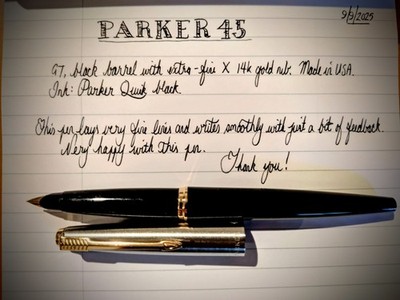 9/9/2025
PARKER 45
GT, black barrel with extra-fine X 14k gold nib. Made in USA.
Ink: Parker Quink black.
This pen lays very fine lines and writes smoothly with just a bit of feedback.
Very happy with this pen.
Thank you!